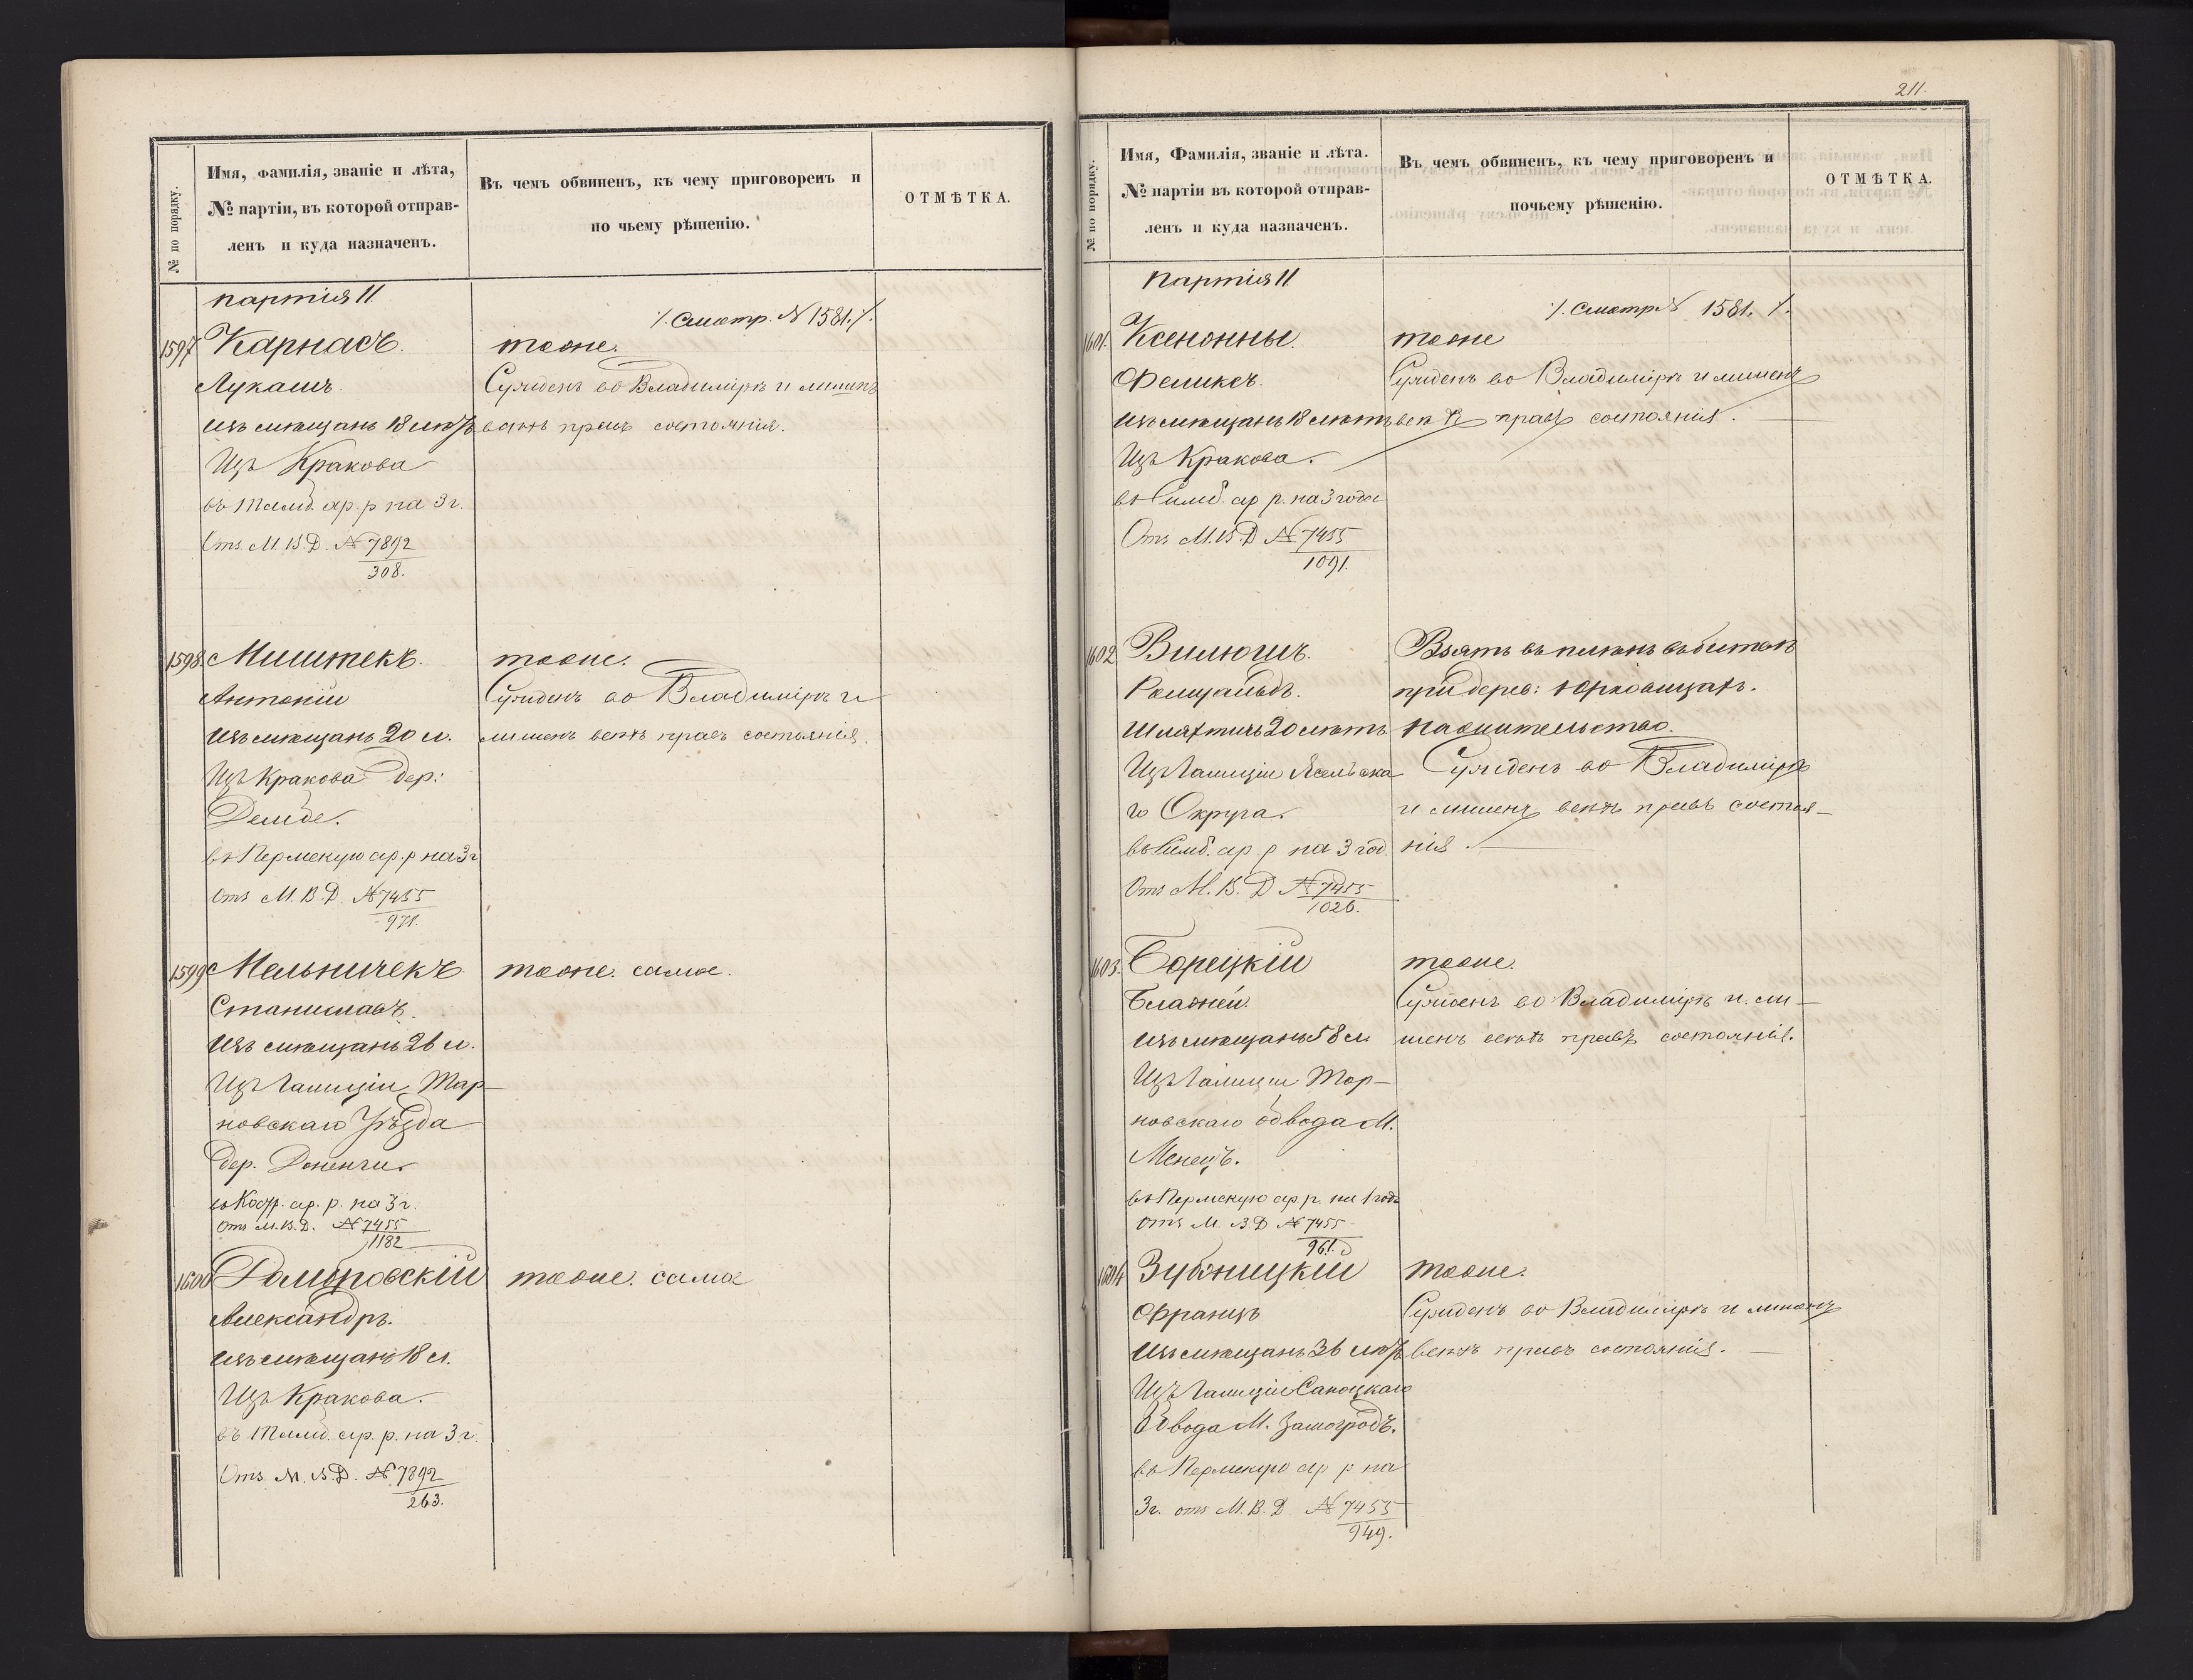 № по порядку.
Имя, Фамилія, званіе и лѣта,
№ партіи, въ которой отправ-
ленъ и куда назначенъ.
Въ чемъ обвиненъ, къ чему приговоренъ и
по чьему рѣшенію.
ОТМѢТКА.
партія 11
1597 Карнасъ.
Лукашъ.
изъ мѣщанъ 18 лѣтъ
Изъ Кракова
въ Тамб. ар. р на 3 г.
Отъ М. В. Д. № 7892
308.
/. Смотр. № 1581. /.
тоже.
Сужденъ во Владимірѣ и лишенъ
всѣхъ правъ состоянія.
1598. Миштекъ.
Антоній
изъ мѣщанъ 20 л.
Изъ Кракова дер:
въ Пермскую ар. р на 3 г
Отъ М. В. Д. № 7455
971.
тоже.
Сужденъ во Владимірѣ и
лишенъ всѣхъ правъ состоянія.
1599 Мельничекъ.
Станиславъ.
изъ мѣщанъ 26 л.
Изъ Галиціи Тар-
новскаго Уѣзда
дер.
ар. р. на 3 г.
Отъ М. В. Д. № 7455
1182
тоже. самое.
1600
Александръ.
изъ мѣщанъ 18 л.
Изъ Кракова.
въ Тамб. ар. р. на 3 г.
Отъ М. В. Д. № 7892
263.
тоже. самое
211.
№ по порядку.
Имя, Фамилія, званіе и лѣта.
№ партіи въ которой отправ-
ленъ и куда назначенъ.
Въ чемъ обвиненъ, къ чему приговоренъ и
почьему рѣшенію.
ОТМѢТКА.
Партія 11
1601. Ксенонны.
Феликсъ.
изъ мѣщанъ 18 лѣтъ
Изъ Кракова.
въ Симб. ар р. на 3 года
Отъ М. В. Д № 7455
1091.
/. Смотр № 1581. /.
тоже
Сужденъ во Владимірѣ и лишенъ
всѣхъ правъ состоянія.
1602 Вилюшъ.
Ромуальдъ.
Шляхтичъ 20 лѣтъ
Изъ Галиціи Ясельска
го Округа.
въ Симб. ар. р на 3 год
Отъ М. В. Д № 7455
1026.
Взятъ въ плѣнъ въ битвѣ
при дерев: Юрковцахъ.
Сужденъ во Владимірѣ
и лишенъ всѣхъ правъ состоя-
нія.
1603. Борецкій
Блажей.
изъ мѣщанъ 58 л
Изъ Галиціи Тор-
новскаго обвода М.
Менецъ.
въ Пермскую ар. р. на 1 годъ
отъ М. В. Д № 7455
961.
тоже.
Сужденъ во Владимірѣ и ли-
шенъ всѣхъ правъ состоянія.
1604 Зубжицкій
Францъ
изъ мѣщанъ 36 лѣтъ
Изъ Галиціи Саноцкаго
Обвода М. Замогродъ.
въ Пермскую ар р на
3 г. отъ М. В. Д № 7455
949.
тоже.
Сужденъ во Владимірѣ и лишенъ
всѣхъ правъ состоянія.